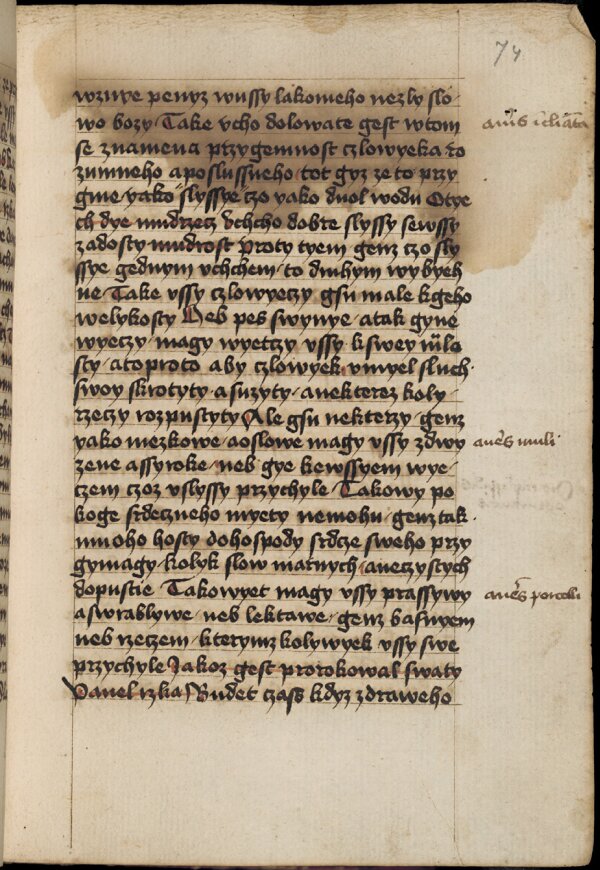 74
wznye penyz wussy lakomeho nezly slo
wo bozy Take vcho dolowate gest wtom
se znamena przygemnost czlowyeka ro
zumneho aposlussneho tot gyz ze to przy
gme yako slyssye czo yako duol wodu Otye
ch dye mudrzecz Vchcho dobre slyssy sewssy
zadosty mudrost Proty tyem genz czo sly
ssye gednym vchchem to druhym wybyeh
ne Take vssy czlowyeczy gsu male kgeho
welykosty Neb pes swynye atak gyne
wyeczy magy wyetczy vssy kswey
sty atoproto aby czlowyek vmyel sluch
swoy skrotyty asuzyty anekterez koly
rzeczy rozpustyty Ale gsu nekterzy genz
yako mezkowe aoslowe magy vssy zdwy
zene assyroke neb gye kewssyem wye
czem czoz vslyssy przychyle Takowy po
koge srdeczneho myety nemohu genz tak
mnoho hosty dohospody srdcze sweho przy
gymagy kolyk slow marnych aneczystych
dopustie Takowyet magy vssy prassywy
aswrablywe neb lektawe genz basnyem
neb rzeczem kterymz kolywyek vssy swe
przychyle Jakoz gest prorokowal swaty
Pawel rzka Budet czass kdyz zdraweho
aures muli
aures porcelli